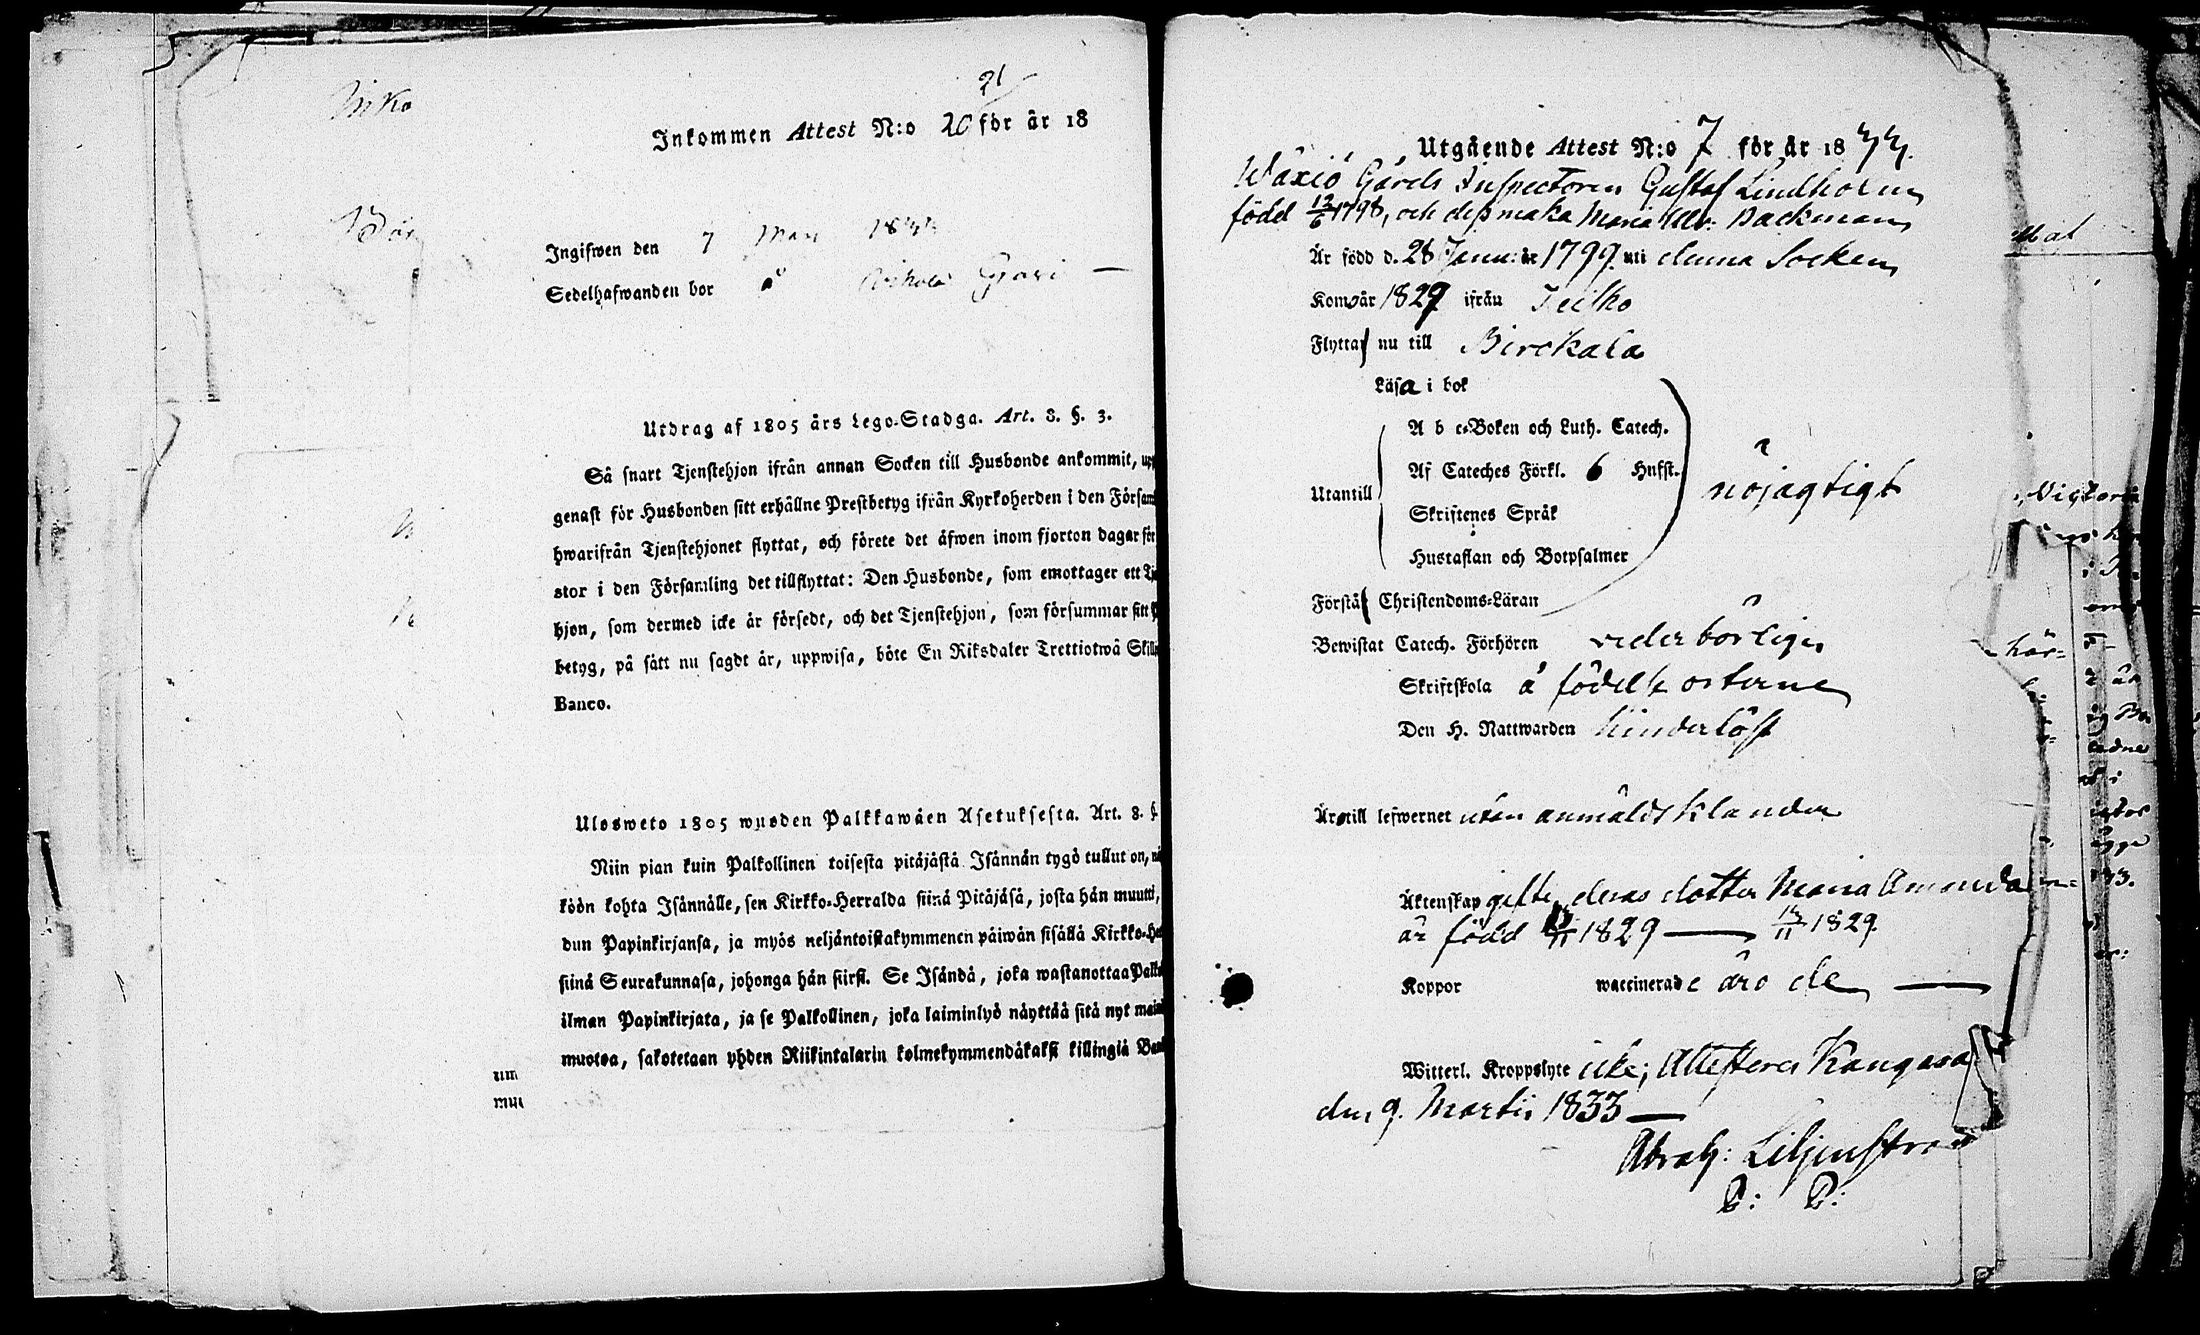 21
Inko
Inkommen Attest N:o 20 för år 18
Ingifwen den 7 Maji
Sedelhafwanden bor å Gård —
Utdrag af 1805 års Lego-Stadga. Art. 8. §. 3.
Så snart Tjenstehjon ifrån annan Socken till Husbonde ankommit, upp
genast för Husbonden sitt erhållne Prestbetyg ifrån Kyrkoherden i den Försam
hwarifrån Tjenstehjonet flyttat, och förete det äfwen inom fjorton dagar för
stor i den Församling det tillflyttat: Den Husbonde, som emottager ett Tje
hjon, som dermed icke är försedt, och det Tjenstehjon, som försummar sitt
betyg, på sätt nu sagdt är, uppwisa, böte En Riksdaler Trettiotwå Skill
Banco.
Ulosweto 1805 wuoden Palkkawäen Asetuksesta. Art. 8. §.
Niin pian kuin Palkollinen toisesta pitäjästä Isännän tygö tullut on, nä
köön kohta Isännälle, sen Kirkko-Herralda siinä Pitäjäsä, josta hän muutti,
dun Papinkirjansa, ja myös neljäntoistakymmenen päiwän sisällä Kirkko-He
siinä Seurakunnasa, johonga hän siirsi. Se Isändä, joka wastanottaa Palko
ilman Papinkirjata, ja se Palkollinen, joka laiminlyö näyttää sitä nyt main
muotoa, sakotetaan yhden Riikintalarin kolmekymmendäkaksi killingiä Ban
Utgående Attest N:o 7 för år 1833.
Wäxiö Gårds Inspectoren Gustaf Lindholm
född 12/6 1798, och dess maka Maria Ulr. Backman
Är född d. 28 Janu: år 1799 uti denna Socken
Kom år 1829 ifrån Teisko
Flyttar nu till Birckala
Läsa i bok
A b c-Boken och Luth. Catech.
Af Cateches Förkl. 6 Hufst.
Utantill
nöjagtigt
Skriftenes Språk
Hustaflan och Botpsalmer
Förstå Christendoms-Läran
Bewistat Catech. Förhören vederbörligen
Skriftskola å födelse orterne
Den H. Nattwarden hinderlöst
Äro till lefwernet utan anmäldt klander
Äktenskap gifte, deras dotter Maria Amanda
är född 1829 — 13/11 1829.
Koppor waccinerade äro de —
Witterl. Kroppslyte icke; Attesteras Kangasa
den 9. Martii 1833 —
Abrah: Liljenstra